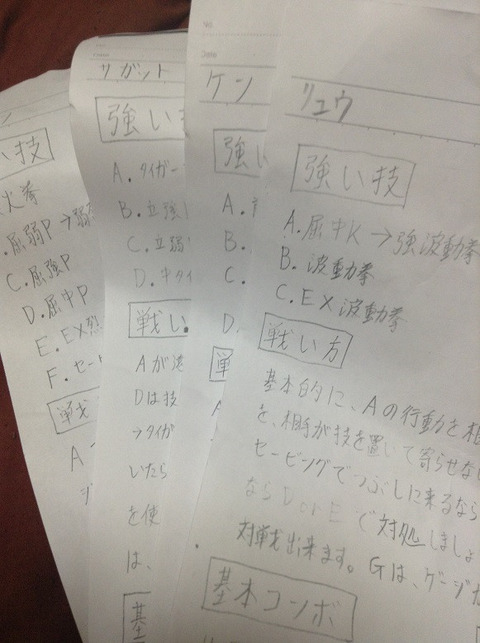 強い技
火拳
屈弱P→弱
C. 屈強P
D. 屈中P
E. EX烈
F. セー
戦
A
サガット
強い
A. タイガー
B. 立強
C. 立弱
D. 中タイ
戦い
Aが
Dは技
→タイガ
いたら
を使
は、
基
No.
Date
ケン
強い
A.
B.
C.
D.
戦
リュウ
強い技
A. 屈中K→強波動拳
B. 波動拳
C. EX波動拳
戦い方
基本的に、Aの行動を相
を、相手が技を置いて寄らせない
セービングでつぶしに来るなら
ならD or Eで対処しましょ
対戦出来ます。Gは、ゲージが
基本コンボ